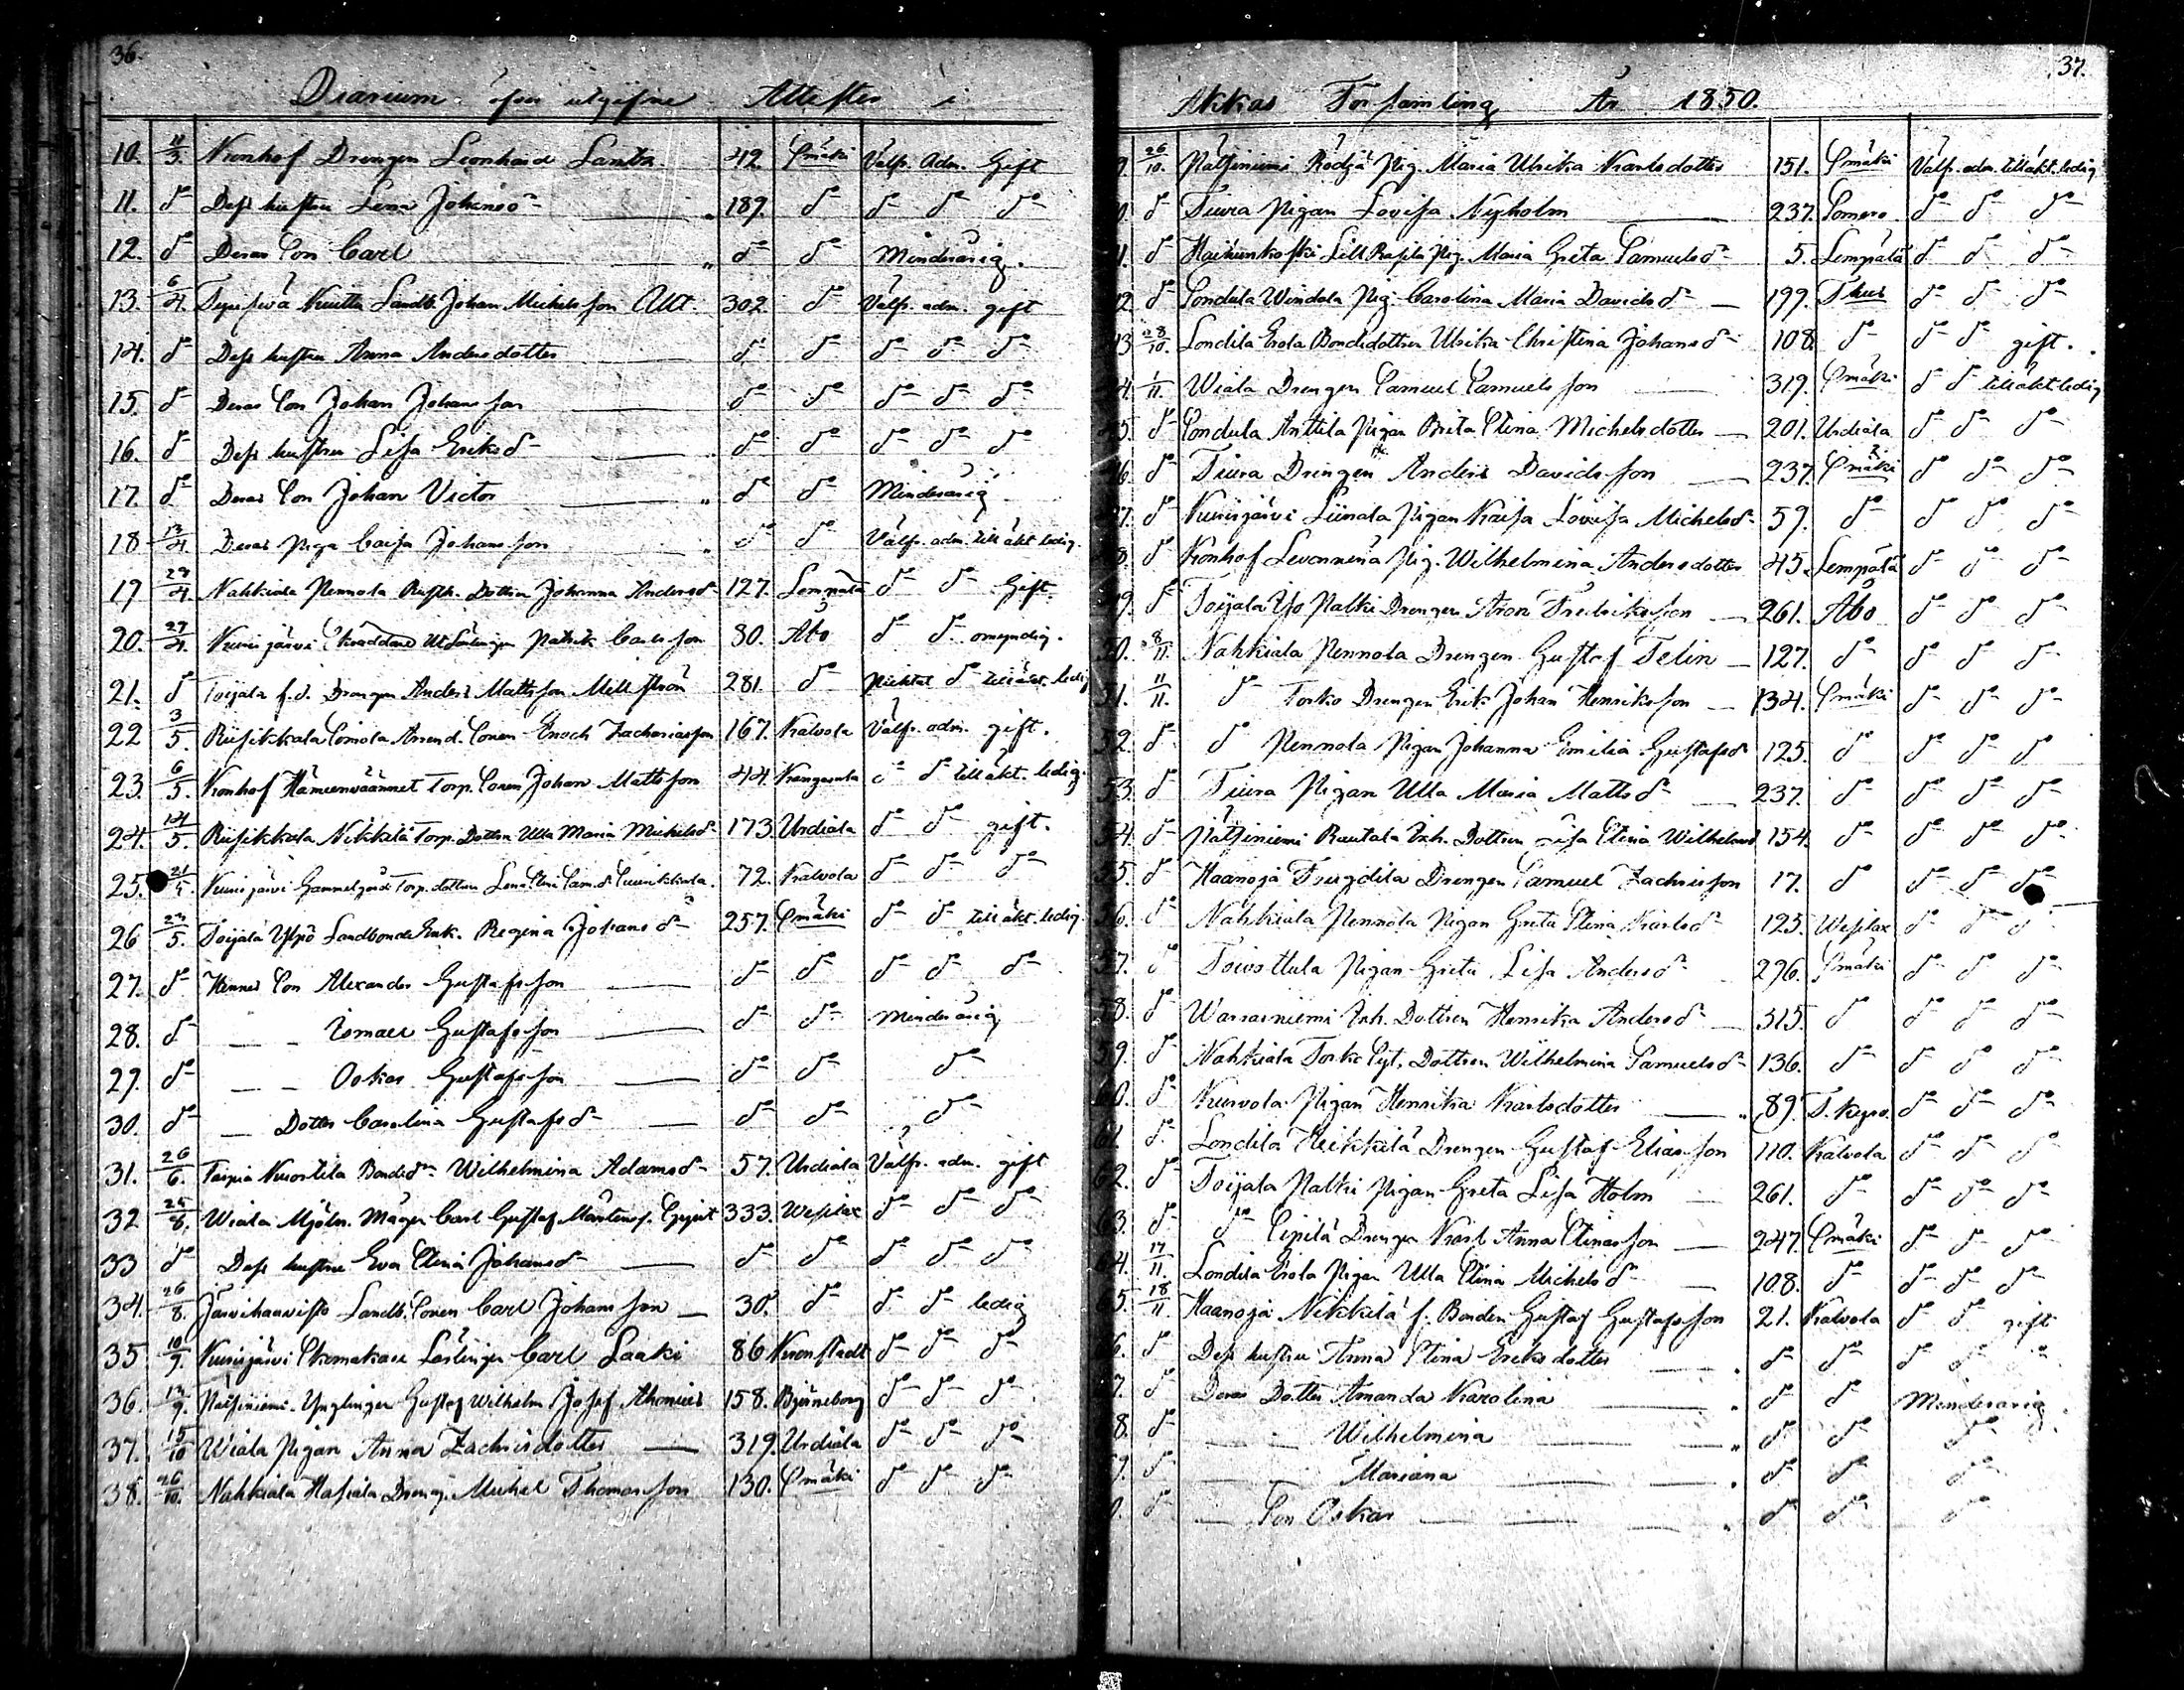 36.
Diarium öfver utgifne Attester i
10. 11/3. Kronhof Drengen Leonhard Lantz 42. Smäki Välfr. Adm. Gift
11. do Dess hustru Lena Johansdr 189. do do do do
12. do Deras Son Carl do do Minderårig.
13. 6/4. Kuutta Landb. Johan Michelsson Allt. 302. do Välfr. adm. gift
14. do Dess hustru Anna Andersdotter do do do do do
15. do Deras Son Johan Johansson do do do do do
16. do Dess hustru Lisa Eriksdr do do do do do
17. do Deras Son Johan Victor do do Minderårig
18 13/4 Deras Piga Caisa Johansson do do Välfr. adm. till äkt. ledig.
19 23/4. Nahkiala Pennola Rusth. Dottren Johanna Andersdr 127. Lempälä do do Gift.
20. 27/4. Kurisjärvi Skräddare Lärlingen Patrik Carlsson 80. Åbo do do omyndig.
21. do Toijala f.d. Drengen Anders Mattsson Millström 281. do do till äkt. ledig
22 3/5. Riisikkala Simola Arrend. Sonen Enoch Zachariasson 167. Kalvola Välfr. adm. gift.
23. 6/5. Kronhof Hämeenväännet Torp. Sonen Johan Mattsson 44. Kangasala do do till äkt. ledig.
24. 14/5. Riisikkala Nikkilä Torp. Dottren Ulla Maria Michelsdr 173. Urdiala do do gift.
25. 21/5. Kurisjärvi Gammelgård Torp. dottren Lena Stina Sam.dr 72. Kalvola do do do
26 23/5. Toijala Yspö Landbonde Enk. Regina Johansdr 257. Smäki do do till äkt. ledig.
27. do Hennes Son Alexander Gustafsson do do do do do
28. do Ismael Gustafsson do do Minderårig
29. do Oskar Gustafsson do do do
30. do Dotter Carolina Gustafsdr do do do
31. 26/6. Tarpia Knuutila Bondedr Wilhelmina Adamsdr 57. Urdiala Välfr. adm. gift
32 25/8. Wiala Mjöln. Mågen Carl Gustaf Mårtenss. 333. Wesilax do do do
33 do Dess hustru Eva Stina Johansdr do do do do do
34. 26/8. Järvihaavisto Landb. Sonen Carl Johansson 30. do do do ledig
35 10/9. Kurisjärvi Skomakare Lärlingen Carl Laaki 86 Kronstadt do do do
36. 13/9. Nätjiniemi Ynglingen Gustaf Wilhelm Josef 158. Björneborg do do do
37. 15/10 Wiala Pigan Anna Zachrisdotter 319. Urdiala do do do
38. 26/10. Nahkiala Hasiala Dreng. Michel Thomasson 130. Smäki do do do
37.
Akkas Församling År 1850.
9. 26/10. Nätjiniemi Rödjä Pig. Maria Ulrika Karlsdotter 151. Smäki Välfr. adm. till äkt. ledig
0. do Tiura Pigan Lovisa Nyholm 237. Somero do do do
1. do Haihunkoski Lill Rasila Pig. Maria Greta Samuelsdr 5. Lempälä do do do
2. do Sondula Windala Pig. Carolina Maria Davidsdr 199. Thus do do do
3 28/10. Londila Erola Bondedottren Ulrika Christina Johansdr 108. do do do gift.
4. 1/11. Wiala Drengen Samuel Samuelsson 319. Smäki do do till äkt. ledig
5. do Sondula Anttila Pigan Brita Stina Michelsdotter 201. Urdiala do do do
6. do Tiura Drengen Anders Davidsson 237. Smäki do do do
7. do Kurisjärvi Liinala Pigan Kaisa Lovisa Michelsdr 59. do do do do
8. do Kronhof Pig. Wilhelmina Andersdotter 45. Lempälä do do do
9. do Toijala Yso Nalki Drengen Aron Fredriksson 261. Åbo do do do
50. 8/11. Nahkiala Pennola Drengen Gustaf Telin 127. do do do do
51. 11/11. do Torko Drengen Erik Johan Henriksson 134. Smäki do do do
52. do do Pennola Pigan Johanna Emilia Gustafsdr 125. do do do do
53. do Tiura Pigan Ulla Maria Mattsdr 237. do do do do
54. do Nätjiniemi Rautala Inh. Dottren Lisa Stina Wilhelmsd 154. do do do do
55. do Haanoja Frugdila Drengen Samuel Zachrisson 17. do do do do
56. do Nahkiala Pennola Pigan Greta Stina Karlsdr 125. Wesilax do do do
57. do Toivottula Pigan Greta Lisa Andersdr 296. Smäki do do do
58. do Warrasniemi Inh. Dottren Henrika Andersdr 315. do do do do
59. do Nahkiala Torko Syt. Dottren Wilhelmina Samuelsdr 136. do do do do
60. do Kurvola Pigan Henrika Karlsdotter 89. T. Kyro. do do do
61. do Londila Heikkilä Drengen Gustaf Eliasson 110. Kalvola do do do
62. do Toijala Nalki Pigan Greta Lisa Holm 261. do do do do
63. do do Sipilä Drengen Karl Anna Stinasson 247. Smäki do do do
64. 17/11. Londila Erola Pigan Ulla Stina Michelsdr 108. do do do do
65. 18/11 Haanoja Nikkilä f. Bonden Gustaf Gustafsson 21. Kalvola do do gift
6. do Dess hustru Anna Stina Eriksdotter do do do do do
7. do Deras Dotter Amanda Karolina do do Minderårig
8. do Wilhelmina do do do
9. do Mariana do do do
0. do Son Oskar do do do